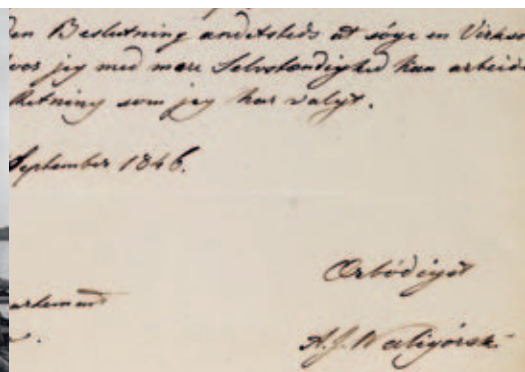 den Beslutning andetsteds at söge en Virkso
hvor jeg med mere Selvstændighed kan arbeide
Retning som jeg har valgt.
September 1846.
Ærbödigst
artement
A. J. Waligórski